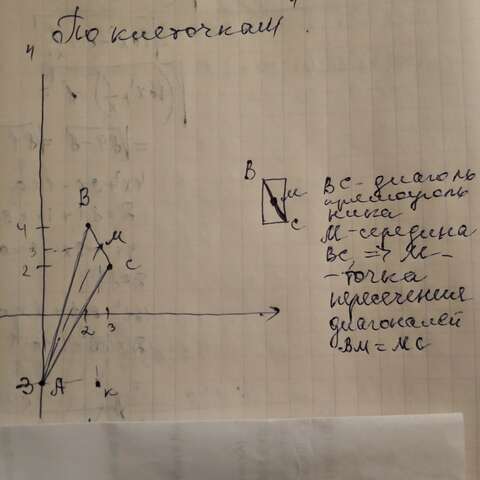 "По клеточкам".
B
4
3
M
2
C
2
3
-3
A
K
B
M
C
BC - диагональ
прямоуголь
ника
M - середина
BC, => M -
- точка
пересечения
диагоналей
BM = MC